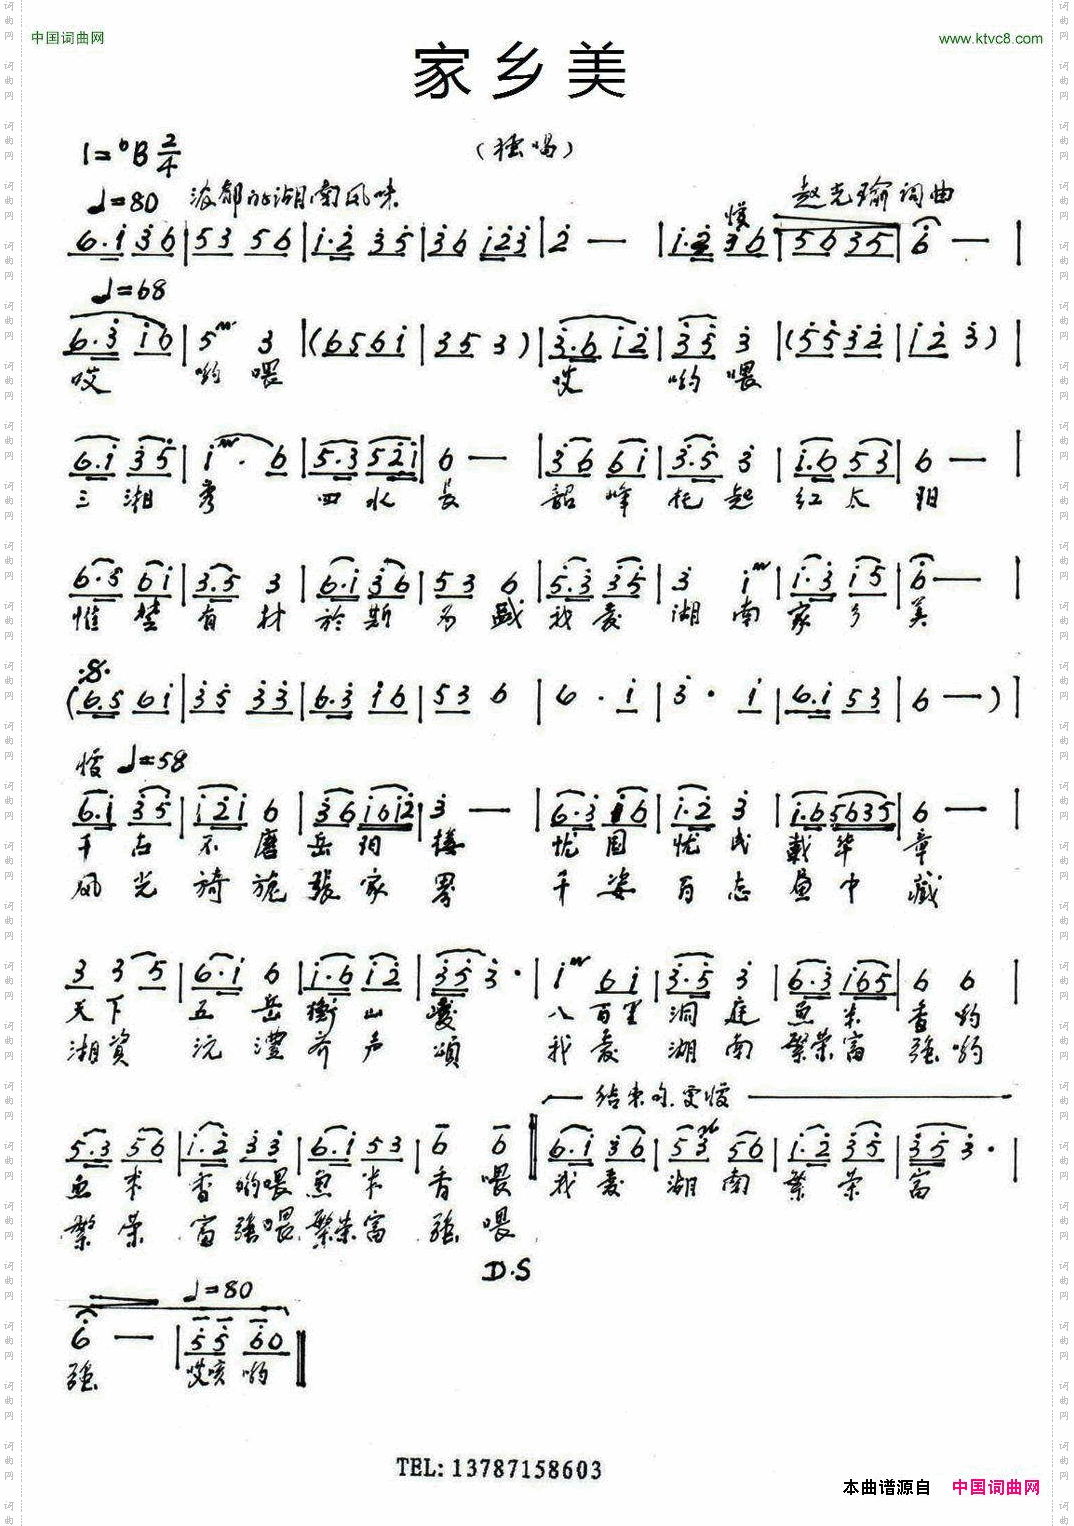 中国词曲网 www.ktvc8.com
家乡美
（独唱）
1=♭B 2/4
♩=80 浓郁的湖南风味 慢 赵克瑜词曲
6·i 36 | 53 56 | i·2 35 | 36 i23 | 2 — | i·2 36 | 5635 | 6 — |
♩=68
6·3 i6 | 5 3 | (656i | 35 3) | 3·6 i2 | 35 3 | (5532 | i2 3) |
哎 哟喂 哎 哟喂
6·i 35 | i· 6 | 5·3 52i | 6 — | 36 6i | 3·5 3 | i·6 53 | 6 — |
三湘秀 四水长 韶峰托起红太阳
6·5 6i | 3·5 3 | 6·i 36 | 53 6 | 5·3 35 | 3 i | i·3 i5 | 6 — |
惟楚有材於斯为盛我爱湖南家乡美
(6·5 6i | 35 33 | 6·3 i6 | 53 6 | 6· i | 3· i | 6·i 53 | 6 —) |
慢 ♩=58
6·i 35 | i2i 6 | 36 i6i2 | 3 — | 6·3 i6 | i·2 3 | i·6 5635 | 6 — |
千古不磨岳阳楼 忧国忧民载华章
风光旖旎張家界 千姿百态昼中藏
3 35 | 6·i 6 | i·6 i2 | 35 3· | i 6i | 3·5 3 | 6·3 i65 | 6 6 |
天下五岳衡山峻 八百里洞庭鱼米香哟
湘資沅澧齐声頌 我爱湖南繁荣富强哟
结束句.更慢
5·3 56 | i·2 33 | 6·i 53 | 6 6 | 6·i 36 | 53 56 | i·2 35 | 35 3· |
鱼米香哟喂鱼米香喂 我爱湖南繁荣富
繁荣富强喂繁荣富强喂
D.S
♩=80
6 — | 55 60 |
强 哎咳哟
TEL: 13787158603
本曲谱源自 中国词曲网